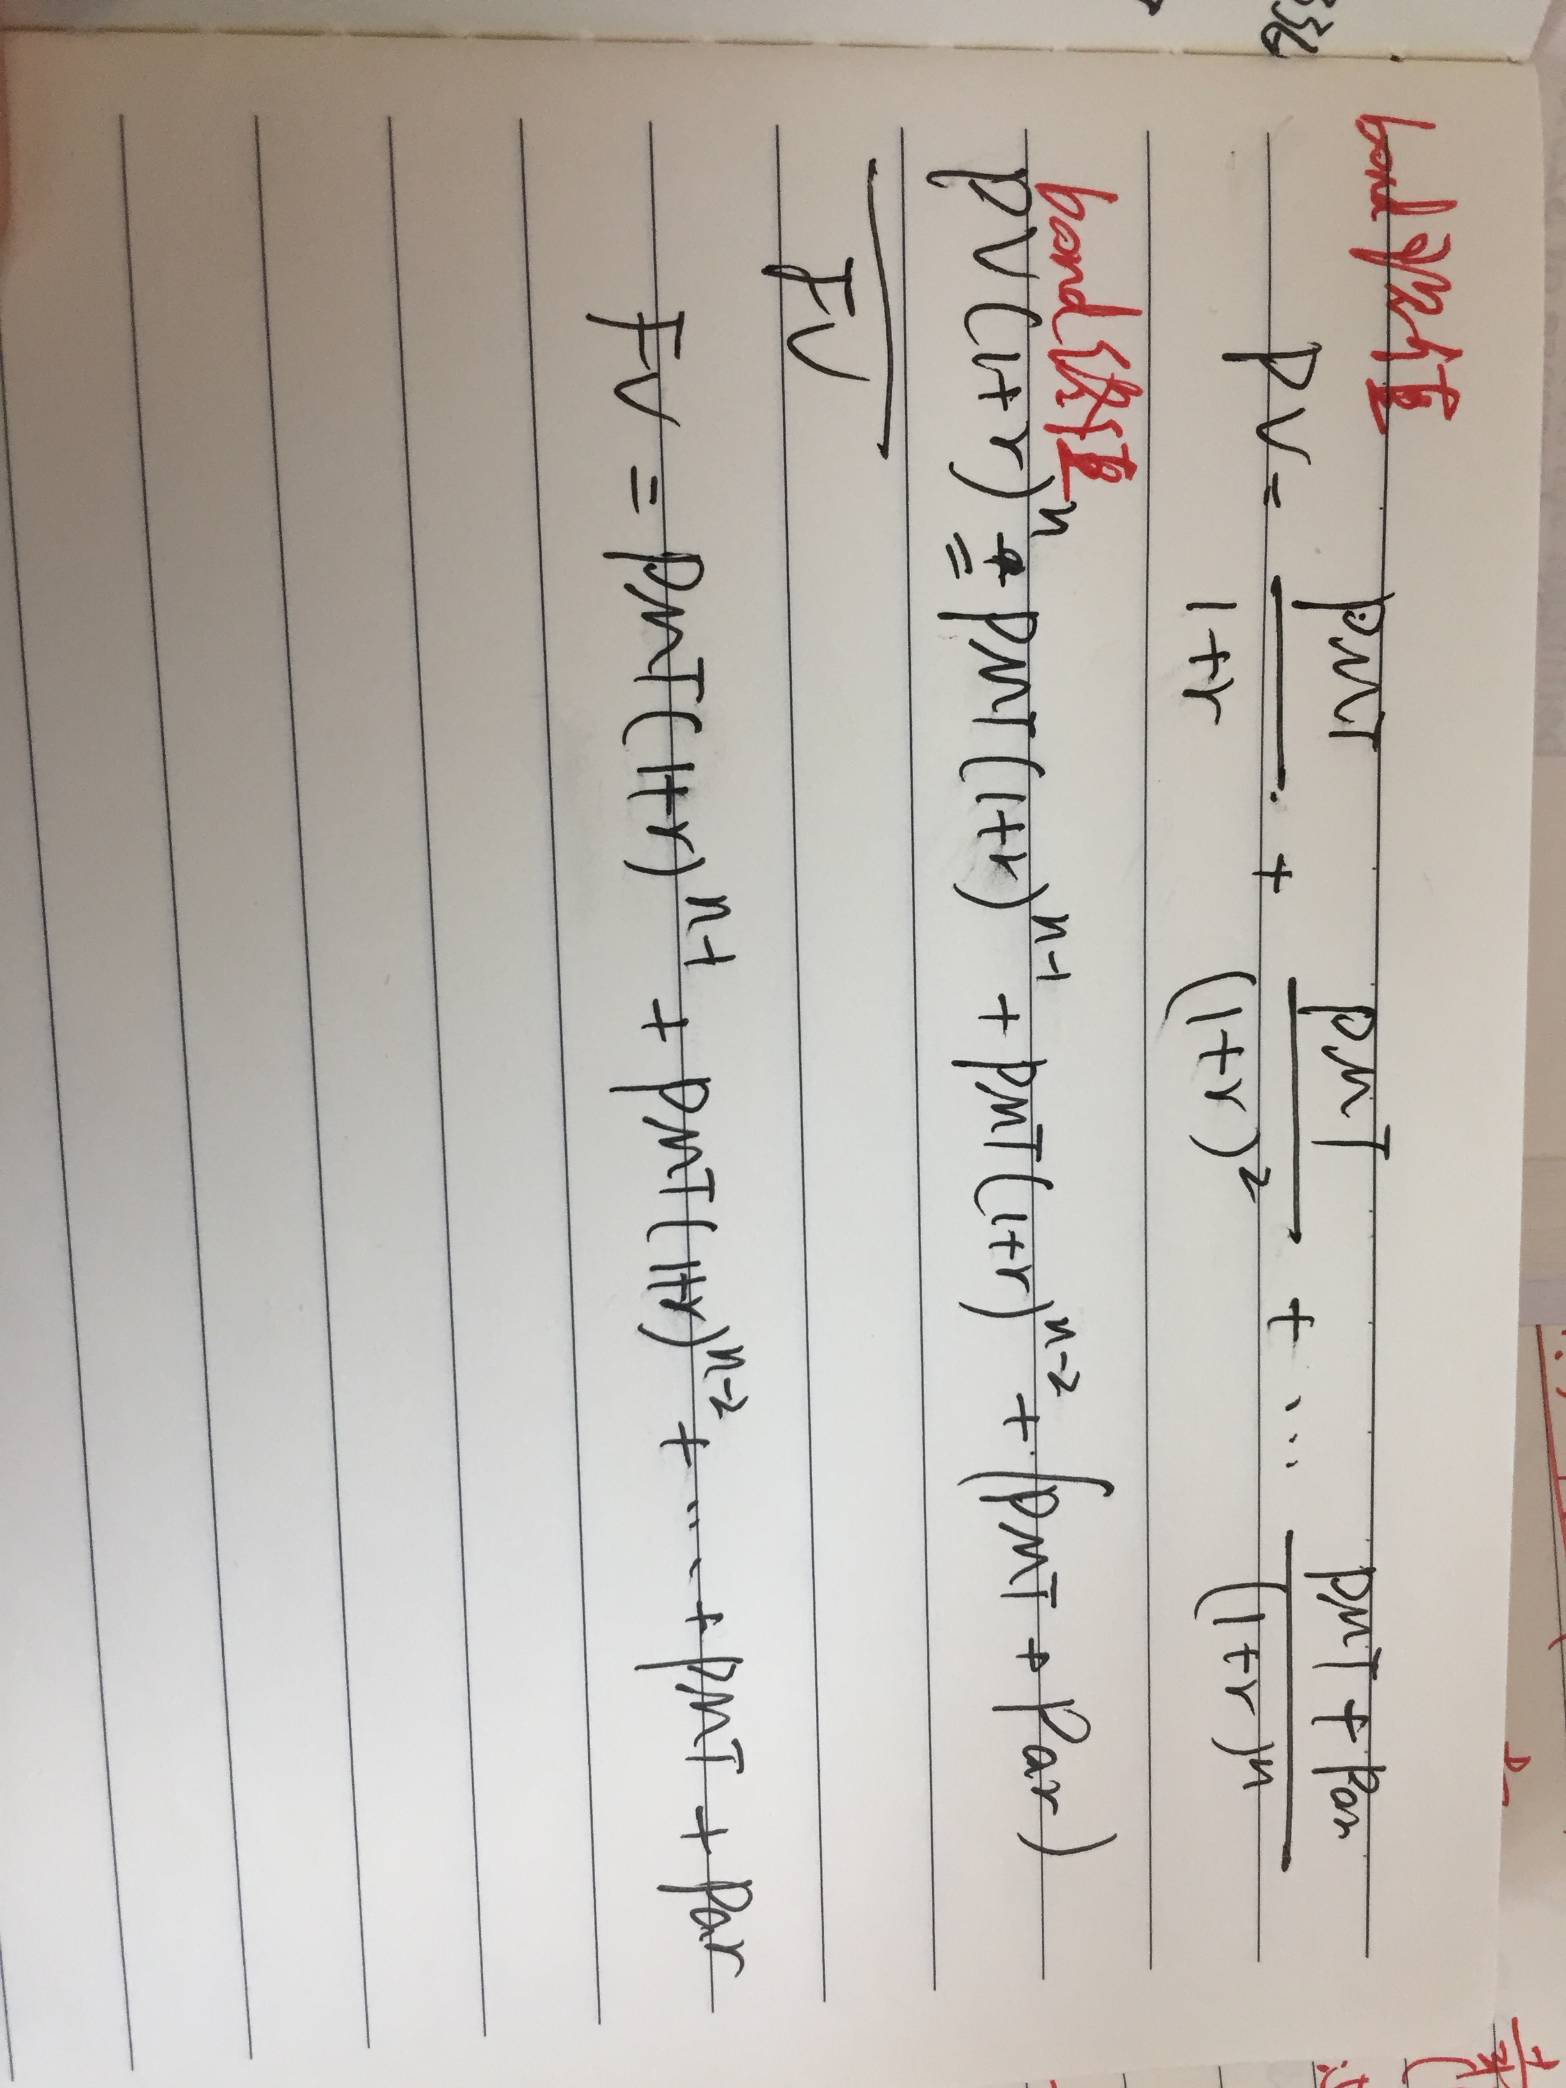 bond 现值
PV = PMT/(1+r) + PMT/(1+r)² + ... PMT + Par/(1+r)ⁿ
bond 终值
PV(1+r)ⁿ = PMT(1+r)ⁿ⁻¹ + PMT(1+r)ⁿ⁻² + (PMT + Par)
FV
FV = PMT(1+r)ⁿ⁻¹ + PMT(1+r)ⁿ⁻² + ... + PMT + Par